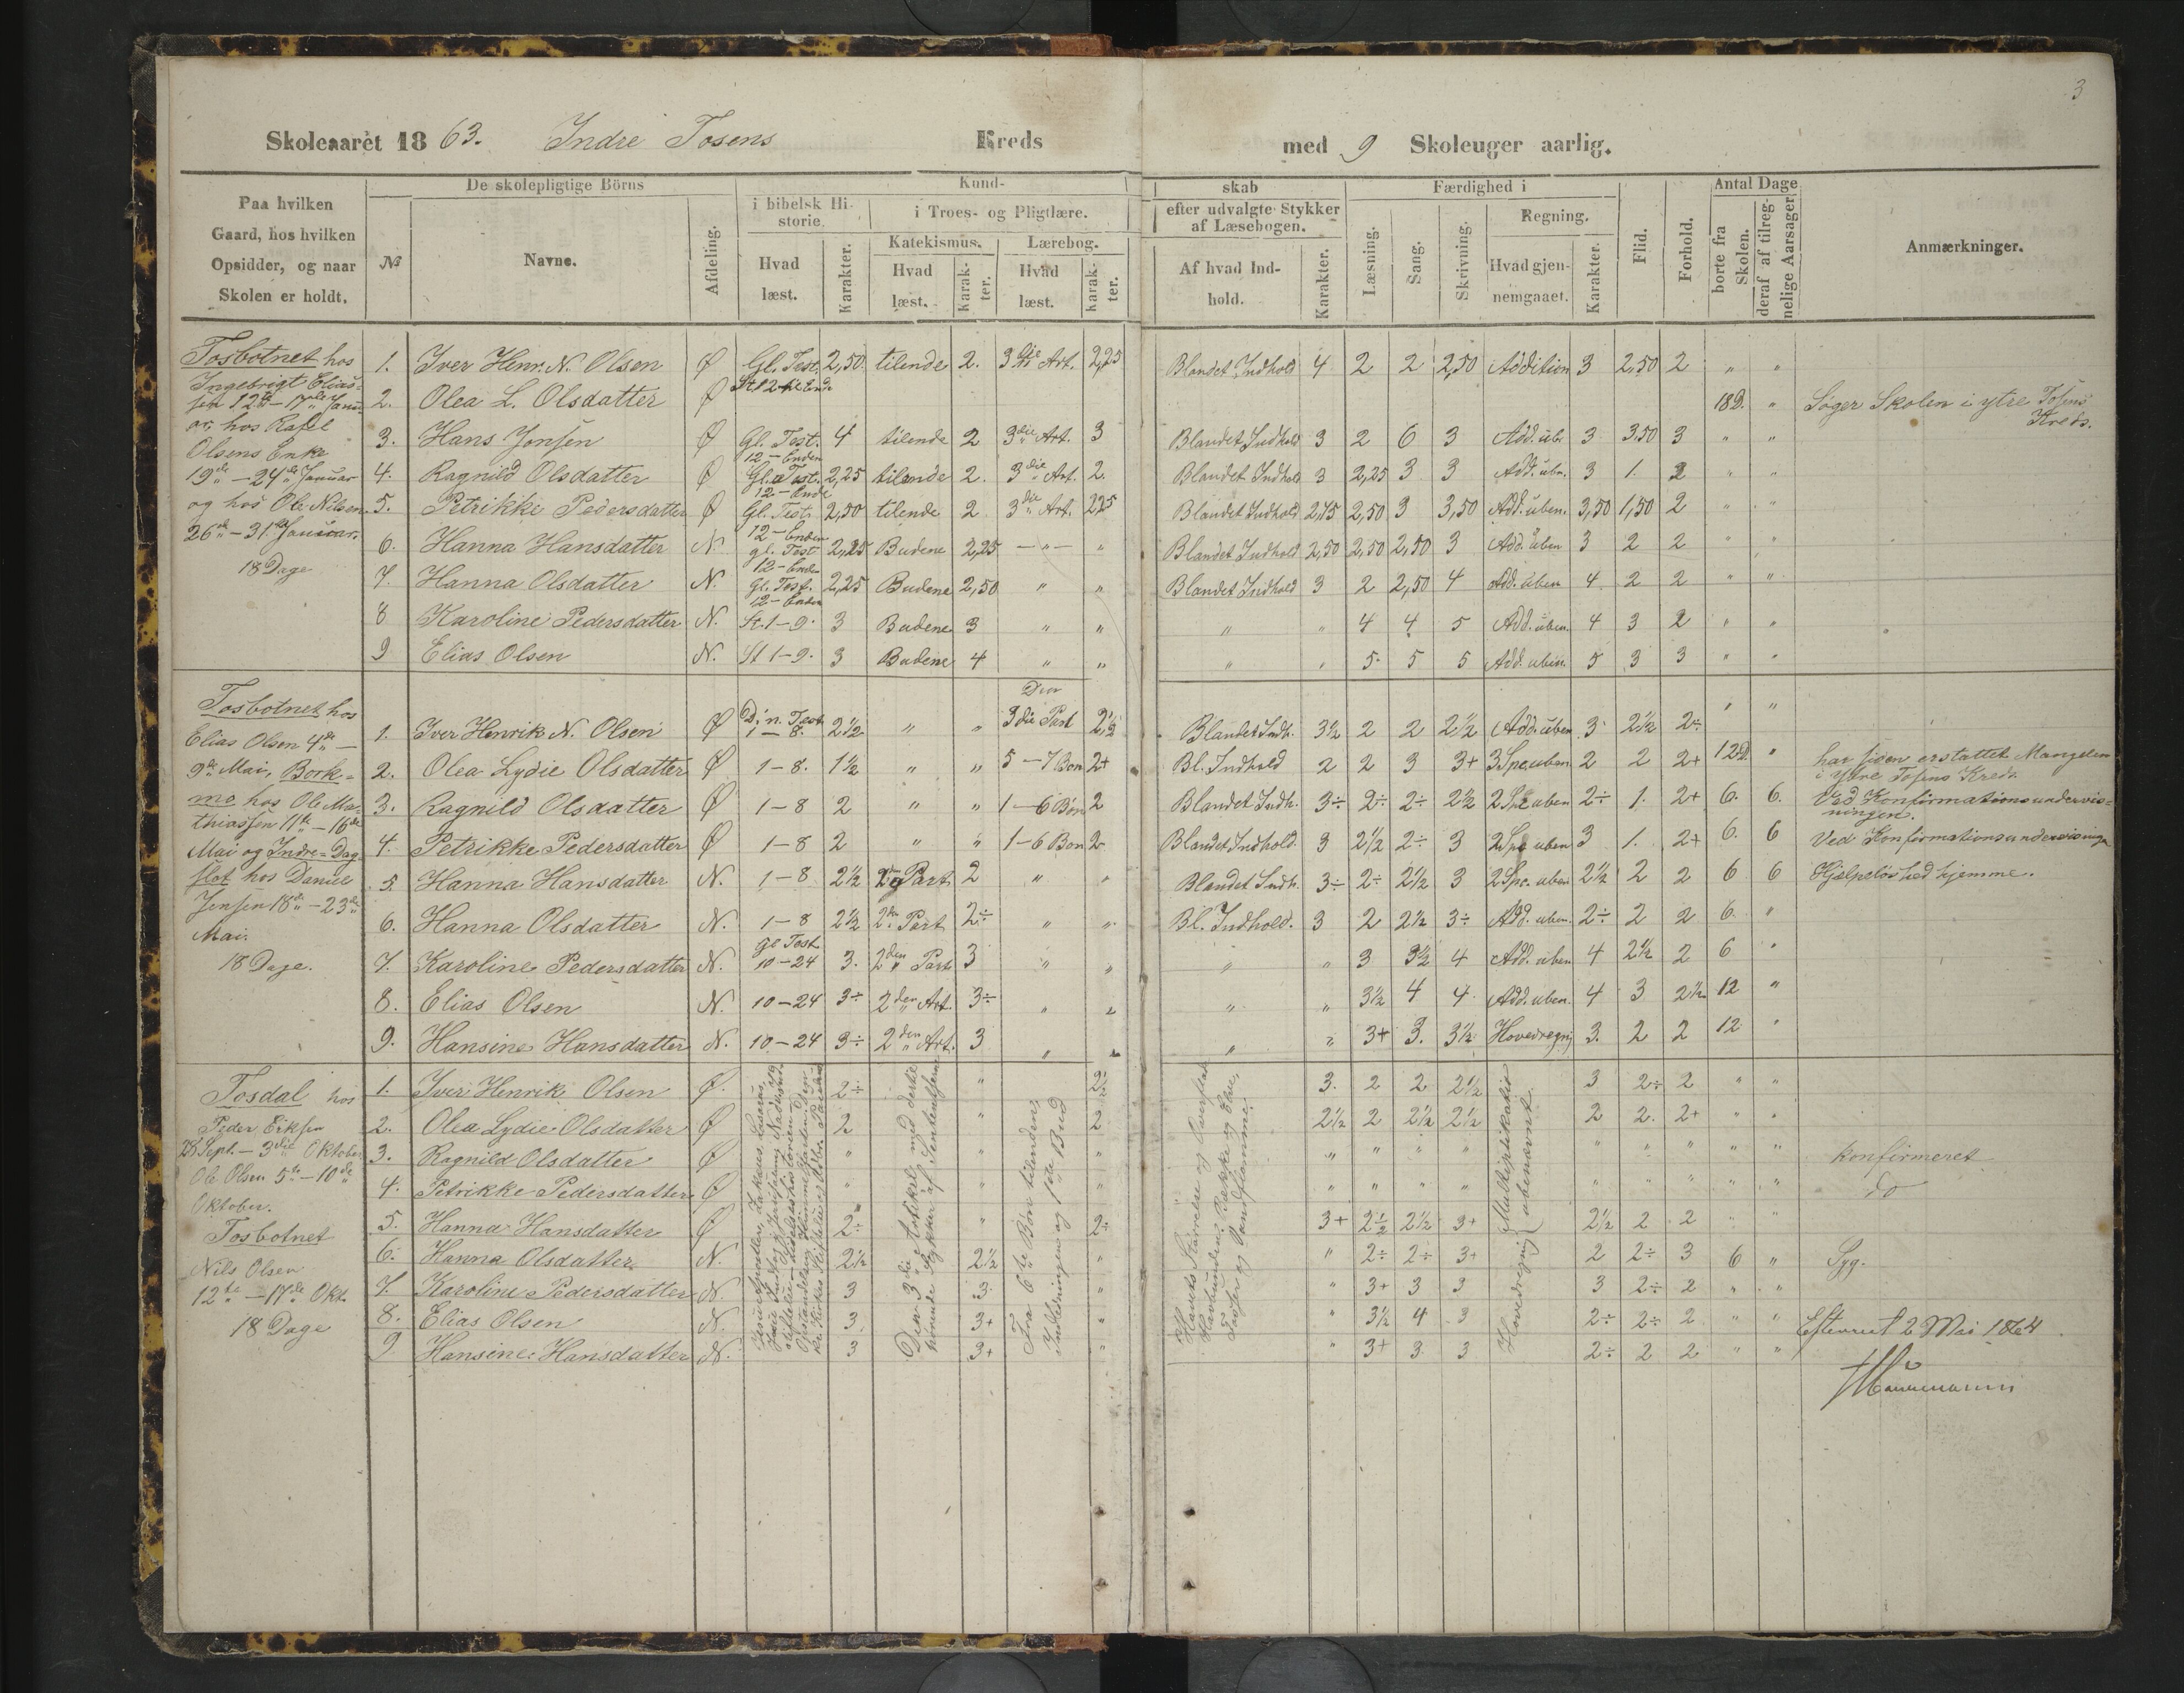 3
Skoleaaret 1863. Indre Tosens Kreds med 9 Skoleuger aarlig.
Paa hvilken Gaard, hos hvilken Opsidder, og naar Skolen er holdt.
De skolepligtige Börns
№ Navne. Afdeling.
Kund-skab
i bibelsk Historie. Hvad læst. Karakter.
i Troes- og Pligtlære.
Katekismus. Hvad læst. Karakter.
Lærebog. Hvad læst. Karakter.
efter udvalgte Stykker af Læsebogen. Af hvad Indhold. Karakter.
Færdighed i
Læsning. Sang. Skrivning. Regning. Hvad gjennemgaaet. Karakter.
Flid. Forhold.
Antal Dage
borte fra Skolen. deraf af tilregnelige Aarsager.
Anmærkninger.
Tosbotnet hos
Ingebrigt Elias-
sen 12te – 17de Janu-
ar, hos Rafel
Olsens Enke
19de – 24de Januar
og hos Ole Nilsen
26de – 31te Januar.
18 Dage
1. Iver Henr. N. Olsen Ø Gl. Test. 2,50 tilende 2. 3die Art. 2,25 Blandet Indhold 4 2 2 2,50 Addition 3 2,50 2 " "
2. Olea L. Olsdatter Ø 18D. " Søger Skolen i ytre Tosens Kreds.
3. Hans Jonsen Ø Gl. Test. 12 – Enden 4 tilende 2 3die Art. 3 Blandet Indhold 3 2 6 3 Add. ub. 3 3,50 3 " "
4. Ragnild Olsdatter Ø Gl. Test. 12 – Ende 2,25 tilende 2. 3die Art. 2. Blandet Indhold 3 2,25 3 3 Add. ubn. 3 1. 2 " "
5. Petrikke Pedersdatter Ø Gl. Test. 12 – Enden 2,50 tilende 2 3die Art. 2,25 Blandet Indhold 2,75 2,50 3 3,50 Add. uben. 3,50 1,50 2 " "
6. Hanna Hansdatter N. gl. Test 12 – Enden 2,25 Budene 2,25 – " – " Blandet Indhold 2,50 2,50 2,50 3 Add. uben 3 2 2 " "
7. Hanna Olsdatter N. Gl. Test. 12 – Enden 2,25 Budene 2,50 " " Blandet Indhold 3 2 2,50 4 Add. uben 4 2 2 " "
8 Karoline Pedersdatter N. St. 1–9. 3 Budene 3 " " " " 4 4 5 Add. uben. 4 3 2 " "
9 Elias Olsen N. St 1–9. 3 Budene 4 " " " " 5. 5 5 Add. uben. 5 3 3 " "
Tosbotnet hos
Elias Olsen 4de –
9de Mai, Bork-
mo hos Ole Ma-
thiassen 11te – 16de
Mai og Indre-Dag-
slet hos Daniel
Jensen 18de – 23de
Mai.
18 Dage.
1. Iver Henrik N. Olsen Ø D. n. Test 1 – 8. 2½ " " Den 3die Part 2½ Blandet Indh. 3½ 2 2 2½ Add. uben 3 2½ 2÷ " "
2. Olea Lydie Olsdatter Ø 1–8. 1½ " " 5 – 7 Bøn 2+ Bl. Indhold 2 2 3 3+ 3 Spc uben 2 2 2+ 12D. " har siden erstattet Mangelen i Ytre Tosens Kreds.
3. Ragnild Olsdatter Ø 1–8 2 " " 1–6 Bøn 2 Blandet Indh. 3÷ 2÷ 2÷ 2½ 2 Spc uben 2÷ 1. 2+ 6. 6. Ved Konfirmationsundervis-
ningen.
4. Petrikke Pedersdatter Ø 1–8 2 " " 1–6 Bøn 2 Blandet Indhold. 3 2½ 2÷ 3 2 Spc uben 3 1. 2+ 6. 6 Ved Konfirmationsundervisningen
5. Hanna Hansdatter N. 1–8 2½ 2den Part 2 " " Blandet Indh. 3÷ 2÷ 2½ 3 2 Spc. uben 2½ 2 2 6 6 Hjælpeløshed hjemme.
6. Hanna Olsdatter N. 1–8 2½ 2den Part 2÷ " " Bl. Indhold. 3 2 2½ 3÷ Add. uben. 2÷ 2 2 6 "
7. Karoline Pedersdatter N. gl Test 10–24 3. 2den Part 3 " " " " 3 3½ 4 Add. uben 4 2½ 2 6 "
8. Elias Olsen N. 10–24 3÷ 2den Art. 3÷ " " " " 3½ 4 4 Add. uben. 4 3 2½ 12 "
9. Hansine Hansdatter N. 10–24 3÷ 2den Art. 3 " " " " 3+ 3. 3½ Hovedregnig 3. 2 2 12 "
Tosdal hos
Peder Eriksen
28 Sept. – 3die Oktober
Ole Olsen 5te – 10de
Oktober.
Tosbotnet
Nils Olsen
12te – 17de Okt.
18 Dage
1. Iver Henrik Olsen Ø. 2÷ " 2½ 3. 2 2 2½ 3 2÷ 2 " "
2. Olea Lydie Olsdatter Ø 2 " 2 2½ 2 2½ 2½ 2 2. 2+ " "
3. Ragnild Olsdatter Ø " " " " " " " " " " " " konfirmeret
4. Petrikke Pedersdatter Ø " " " " " " " " " " " " do
5. Hanna Hansdatter Ø 2÷ " 2÷ 3+ 2½ 2½ 3+ 2½ 2 2 " "
6. Hanna Olsdatter N. 2½ 2½ " " 2÷ 2÷ 3+ 2 2÷ 3 6 " Syg.
7. Karoline Pedersdatter N. 3 3 " " 3+ 3 3 3 2÷ 2 " "
8. Elias Olsen N. 3 3+ " " 3½ 4 3 2÷ 2÷ 2 " "
9 Hansine Hansdatter N. 3 3+ " " 3+ 3 3 2÷ 2 2 " "
Den 3die Artikel med dertil
hørende Stykker af
Fra 6te Bøn tilenden,
Indledningen og 1ste Bud
Hovedregnig Multiplikation ubenævnt.
Efterseet 2 Mai 1864